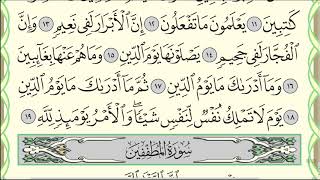 كَٰتِبِينَ ١١ يَعْلَمُونَ مَا تَفْعَلُونَ ١٢ إِنَّ ٱلْأَبْرَارَ لَفِى نَعِيمٍ ١٣ وَإِنَّ
ٱلْفُجَّارَ لَفِى جَحِيمٍ ١٤ يَصْلَوْنَهَا يَوْمَ ٱلدِّينِ ١٥ وَمَا هُمْ عَنْهَا بِغَآئِبِينَ
١٦ وَمَآ أَدْرَىٰكَ مَا يَوْمُ ٱلدِّينِ ١٧ ثُمَّ مَآ أَدْرَىٰكَ مَا يَوْمُ ٱلدِّينِ
١٨ يَوْمَ لَا تَمْلِكُ نَفْسٌ لِّنَفْسٍ شَيْـًٔا ۖ وَٱلْأَمْرُ يَوْمَئِذٍ لِّلَّهِ ١٩
سُورَةُ المُطَفِّفِينَ